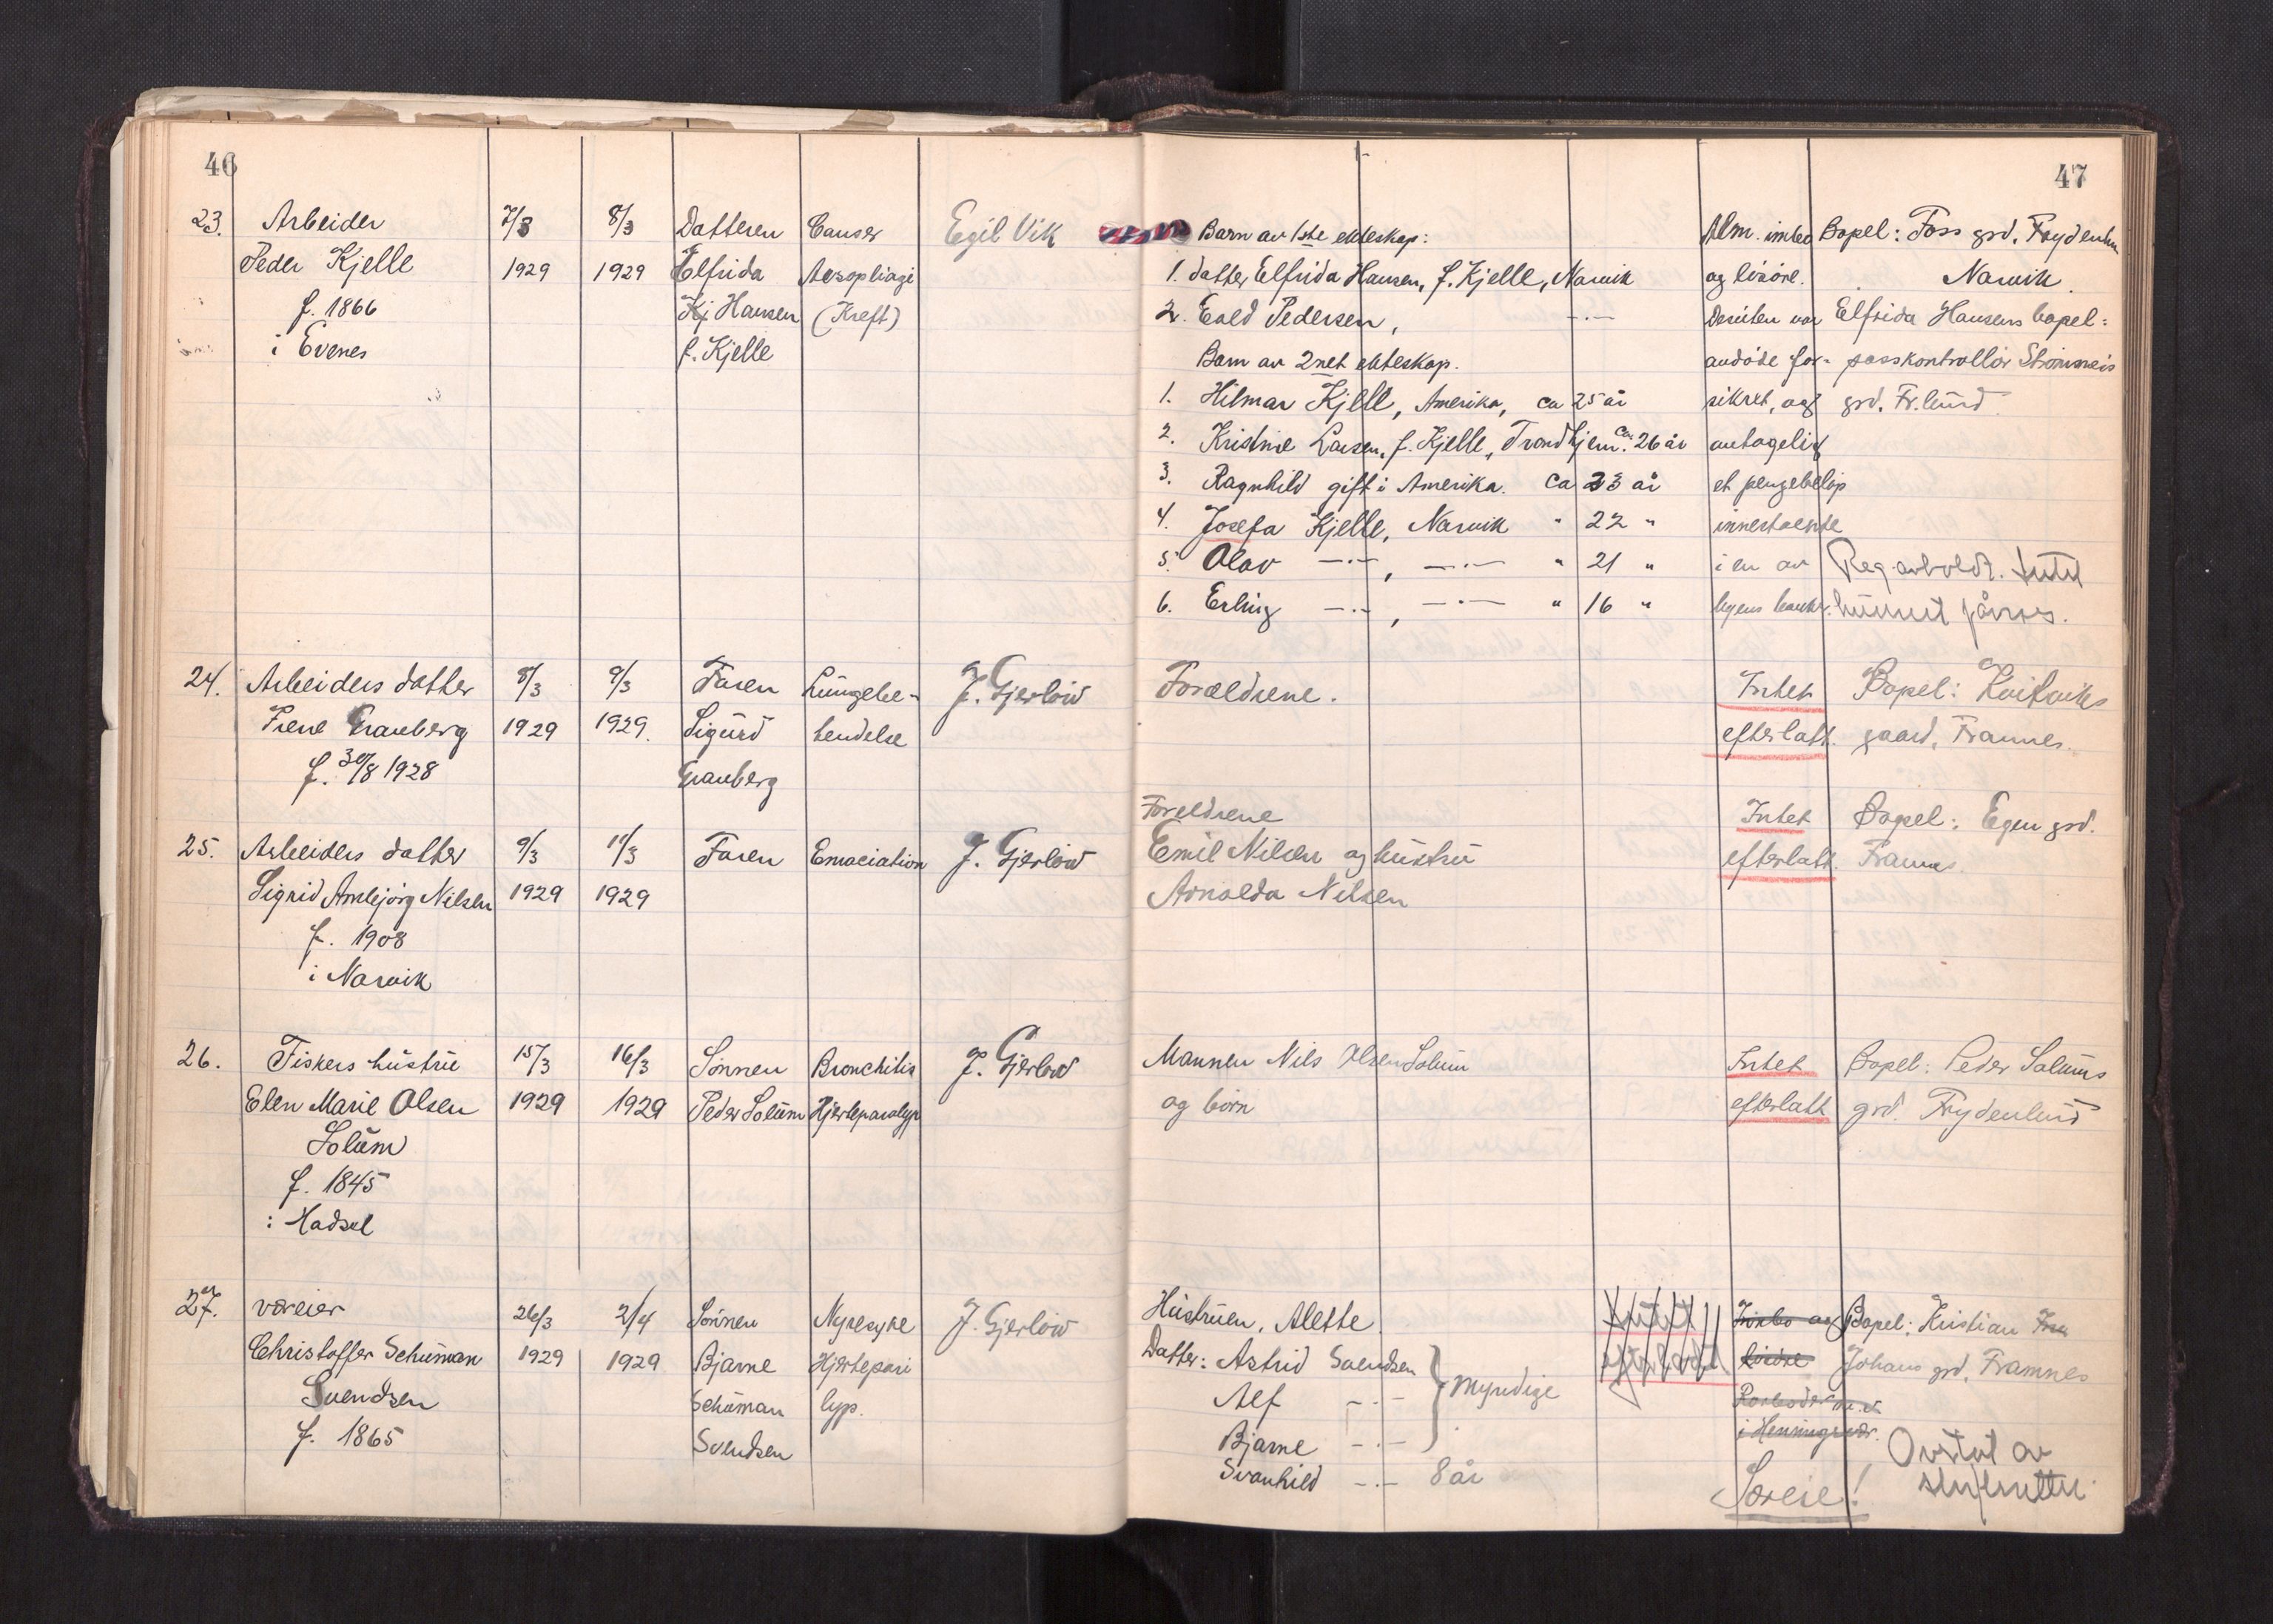 46
47
23. Arbeider 7/3 8/3 Datteren Canser Egil Vik Barn av 1ste ekteskap: Alm. innbo Bopel: Foss grd. Frydenlun
Peder Kjelle 1929 1929 Elfrida 1. datter Elfrida Hansen, f. Kjelle, Narvik og lösöre. Narvik.
f. 1866 Kj Hansen (Kreft) 2. Evald Pedersen, —·— Desuten var Elfrida Hansens bopel:
i Evenes f. Kjelle Barn av 2net ekteskap. avdöde for- passkontrollör Strömsnes
1. Hilmar Kjelle, Amerika, ca 25 år sikret, og grd. Fr.lund.
2. Kristine Larsen, f. Kjelle, Trondhjem. ca. 26 år antagelig
3. Ragnhild gift i Amerika. ca 23 år et pengebelöp
4. Josefa Kjelle, Narvik " 22 " innestaende
5. Olav —·—, —·— " 21 " i en av
6. Erling —·—, —·— " 16 " byens banker.
24. Arbeiders datter 8/3 9/3 Faren Lungebe- J. Gjerlöw Foreldrene. Intet Bopel:
Irene Granberg 1929 1929. Sigurd tendelse efterlatt. gaard, Framnes.
f. 30/8 1928 Granberg
Foreldrene Intet Bopel: Egen grd.
25. Arbeiders datter 9/3 11/3 Faren Emaciation J. Gjerlöw Emil Nilsen og hustru efterlatt. Framnes.
Sigrid Arnbjörg Nilsen 1929 1929 Arnolda Nilsen
f. 1908
i Narvik
26. Fiskers hustru 15/3 16/3 Sönnen Bronchitis J. Gjerlöw Mannen Nils Olsen Solum Intet Bopel: Peder Solums
Elen Marie Olsen 1929 1929 Peder Solum Hjerteparalyp og börn efterlatt grd. Frydenlund
Solum
f. 1845
i Hadsel
27. væreier 26/3 2/4 Sönnen Nyresyke J. Gjerlöw Hustruen, Alette. Intet Innbo og Bopel: Kristian
Christoffer Schuman 1929 1929 Bjarne Hjertepara Datter: Astrid Svendsen efterlatt lösöre Johans grd. Framnes
Svendsen Schuman lyp. Alf —·— Myndige Rorboder m.v.
f. 1865 Svendsen Bjarne —·— i Henningsvær.
Svanhild —·— 8 år Særeie! Avstut av